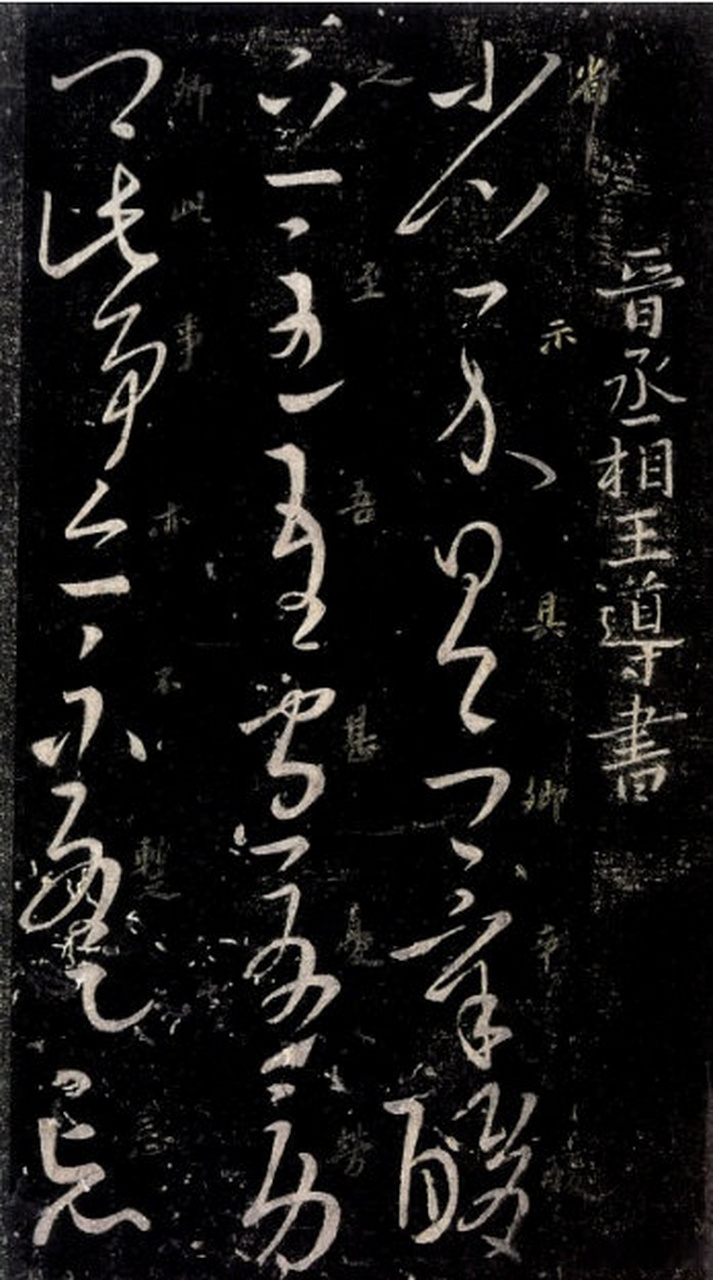 晉丞相王導書
省示具卿辛酸
之至吾甚憂勞
卿此事亦不暫忘